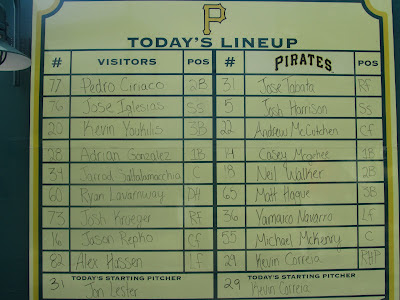 P
TODAY'S LINEUP
# VISITORS POS # PIRATES POS
77 Pedro Ciriaco 2B 31 Jose Tabata RF
76 Jose Iglesias SS 5 Josh Harrison SS
20 Kevin Youkilis 3B 22 Andrew McCutchen CF
28 Adrian Gonzalez 1B 14 Casey Mcgehee 1B
39 Jarrod Saltalamacchia C 18 Neil Walker 2B
60 Ryan Lavarnway DH 65 Matt Hague 3B
73 Josh Kroeger RF 36 Yamaico Navarro Lf
16 Jason Repko Cf 55 Michael McKenry C
82 Alex Hassen Lf 29 Kevin Correia RHP
TODAY'S STARTING PITCHER TODAY'S STARTING PITCHER
31 Jon Lester 29 Kevin Correia